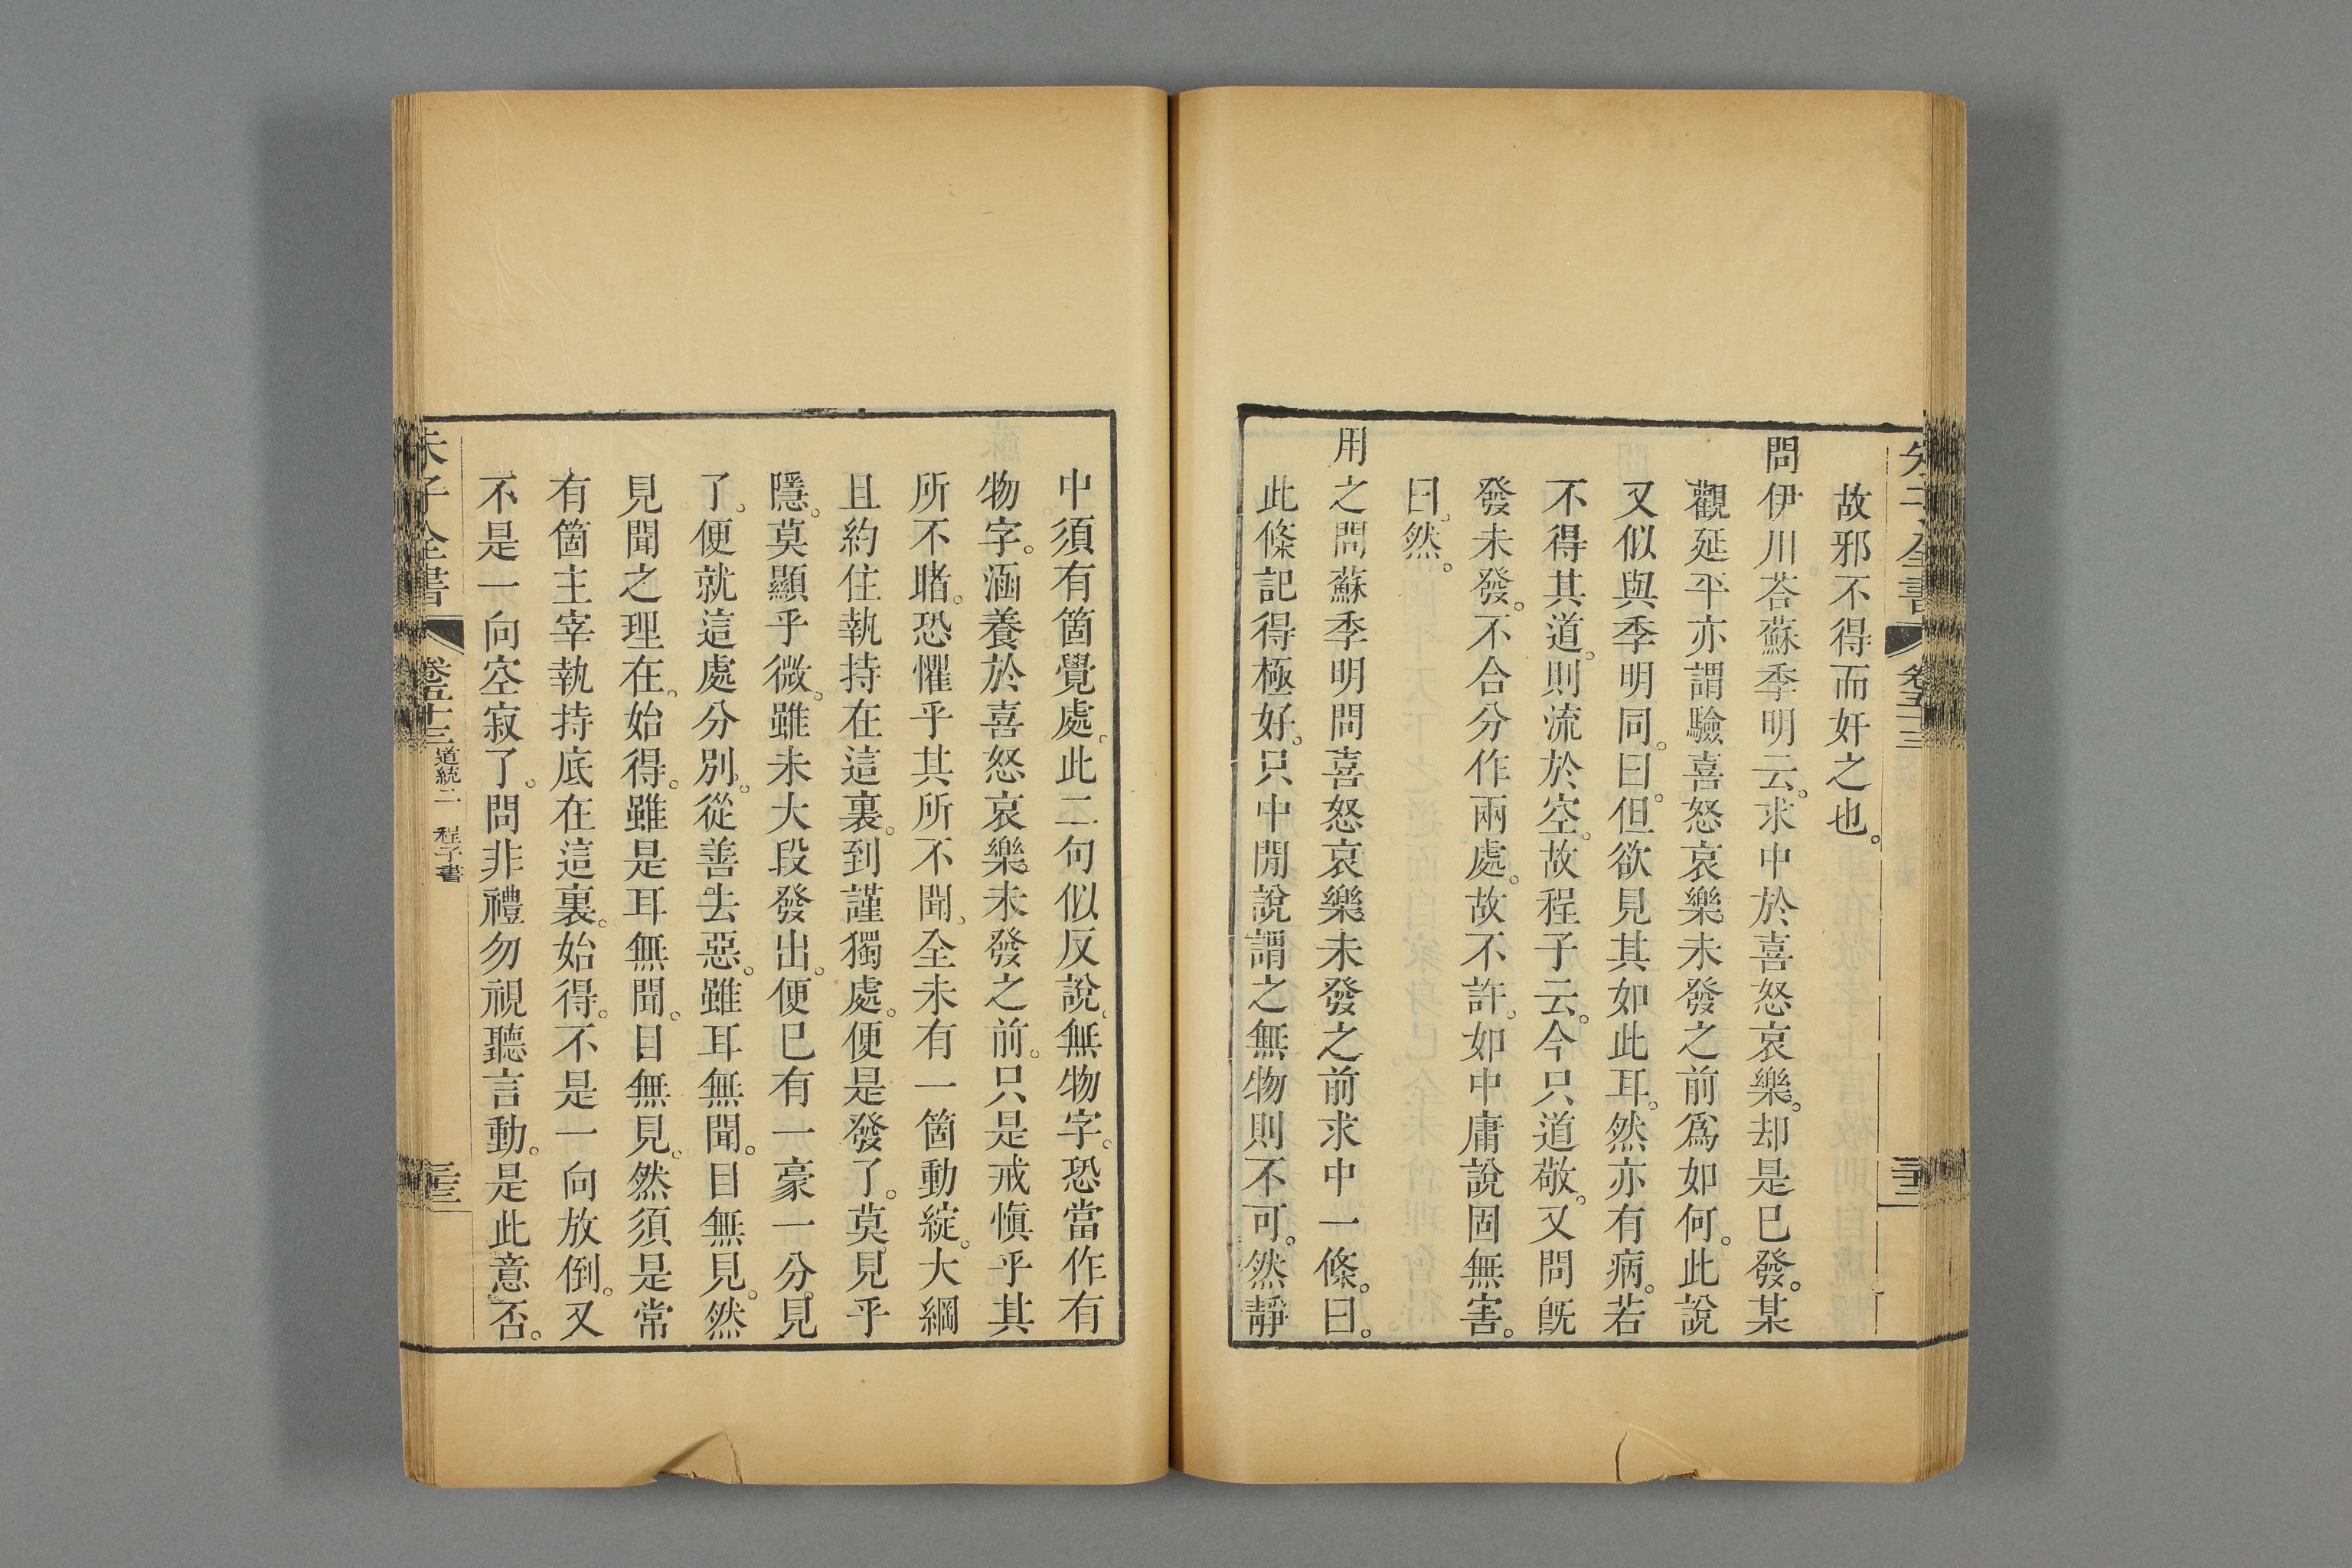 朱子全書 卷五十三
故邪不得而奸之也。
問伊川荅蘇季明云。求中於喜怒哀樂。却是已發。某
觀延平亦謂驗喜怒哀樂未發之前爲如何。此說
又似與季明同。曰。但欲見其如此耳。然亦有病。若
不得其道。則流於空。故程子云。今只道敬。又問旣
發未發。不合分作兩處。故不許。如中庸說固無害。
曰。然。
用之問蘇季明問喜怒哀樂未發之前求中一條。曰。
此條記得極好。只中閒說謂之無物則不可。然靜
中須有箇覺處。此二句似反說。無物字。恐當作有
物字。涵養於喜怒哀樂未發之前。只是戒愼乎其
所不睹。恐懼乎其所不聞。全未有一箇動綻。大綱
且約住執持在這裏。到謹獨處。便是發了。莫見乎
隱。莫顯乎微。雖未大段發出。便已有一豪一分。見
了。便就這處分別。從善去惡。雖耳無聞。目無見。然
見聞之理在。始得。雖是耳無聞。目無見。然須是常
有箇主宰執持底在這裏。始得。不是一向放倒。又
不是一向空寂了。問非禮勿視聽言動。是此意否。
朱子全書 卷五十三 道統二 程子書